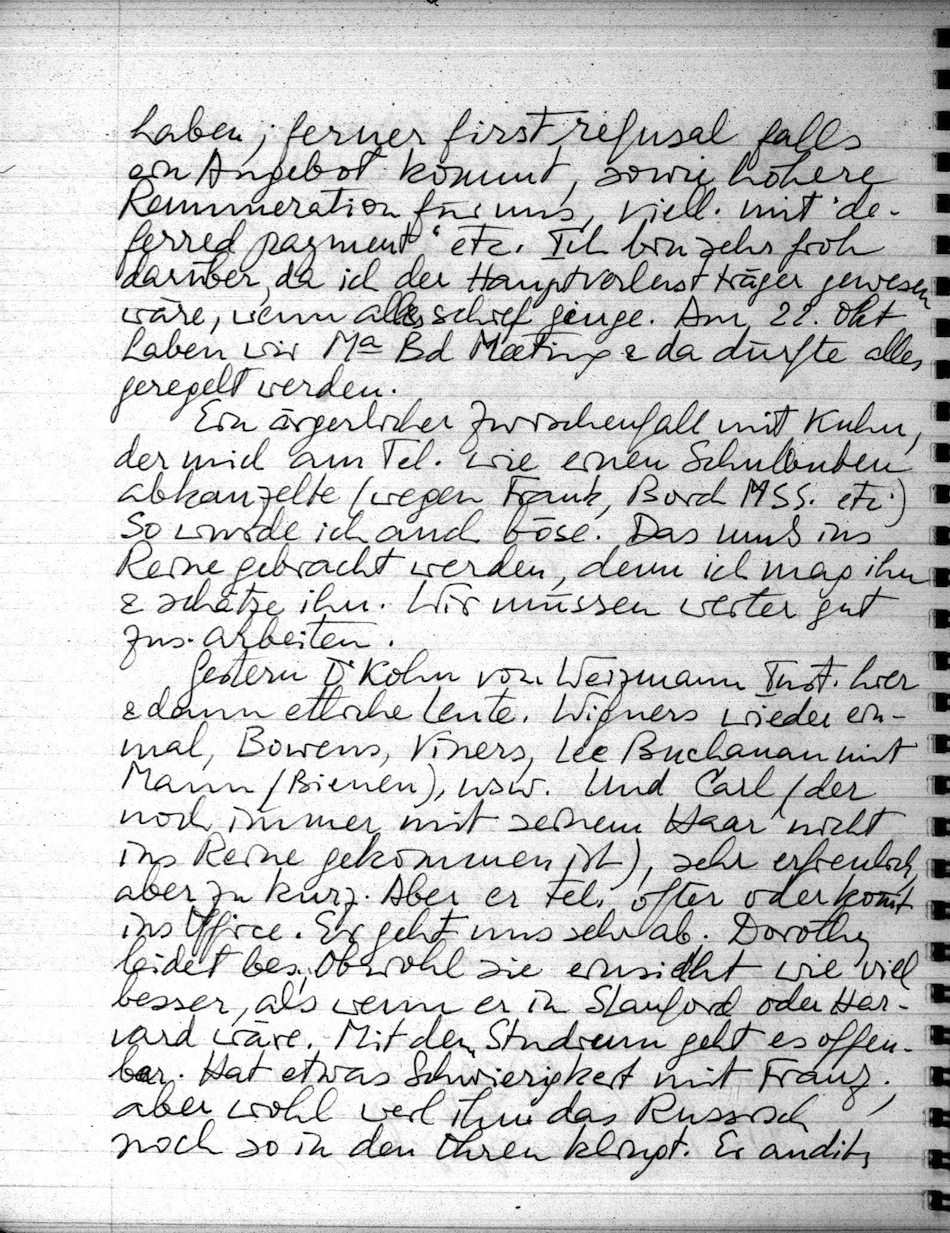 haben; ferner first refusal falls
ein Angebot kommt, sowie höhere
Remuneration für uns, viell. mit "de-
ferred payment" etc. Ich bin sehr froh
darüber, da ich der Hauptverlustträger gewesen
wäre, wenn alles schief ginge. Am 22. Okt
haben wir Ma Bd Meeting & da dürfte alles
geregelt werden.
Ein ärgerlicher Zwischenfall mit Kuhn,
der mich am Tel. wie einen Schulbuben
abkanzelte (wegen Frank, Bord MSS. etc.)
So wurde ich auch böse. Das muß ins
Reine gebracht werden, denn ich mag ihn
& schätze ihn. Wir müssen weiter gut
zus. arbeiten.
Gestern Dr Kohn vom Weizmann Inst. hier
& dann etliche Leute. Wigners wieder ein-
mal, Bowens, Viners, Lee Buchanan mit
Mann (Bienen), usw. Und Carl (der
noch immer mit seinem Haar nicht
ins Reine gekommen ist), sehr erfreulich,
aber zu kurz. Aber er tel. öfter oder kommt
ins Office. Er geht uns sehr ab. Dorothy
leidet bes., obwohl sie einsieht wie viel
besser, als wenn er in Stanford oder Har-
vard wäre. Mit dem Studium geht es offen-
bar. Hat etwas Schwierigkeit mit Franz.,
aber wohl weil ihm das Russisch
noch so in den Ohren klingt. Er audits